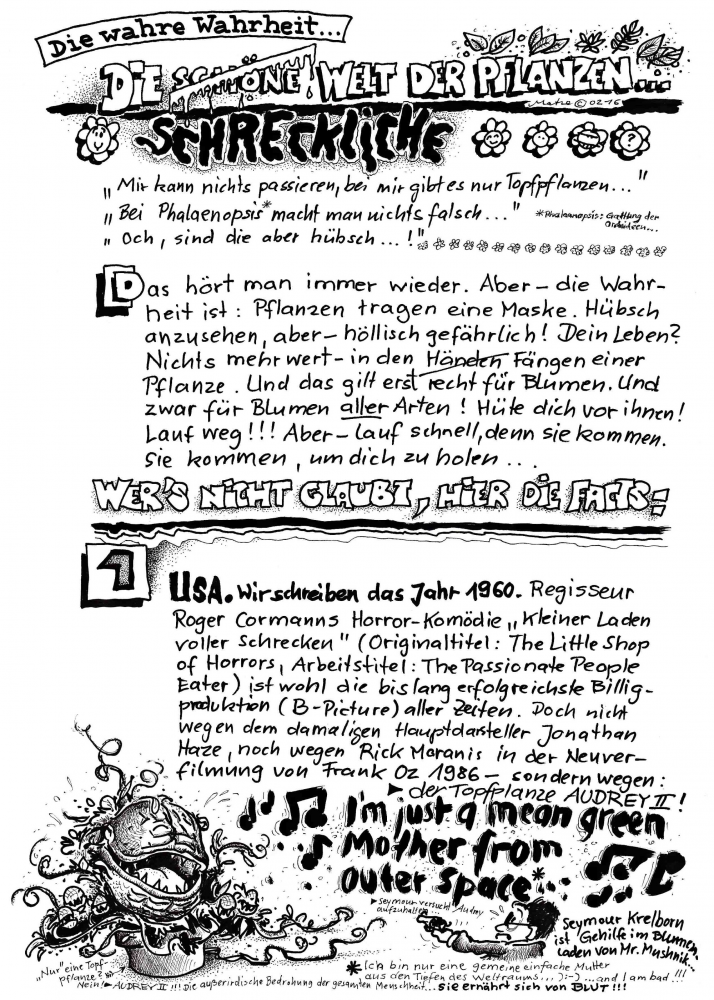 Die wahre Wahrheit...
DIE SCHÖNE WELT DER PFLANZEN...
Matze © 02-16
SCHRECKLICHE
„Mir kann nichts passieren, bei mir gibt es nur Topfpflanzen..."
„Bei Phalaenopsis* macht man nichts falsch..."
*Phalaenopsis: Gattung der
Orchideen...
„Och, sind die aber hübsch...!"
Das hört man immer wieder. Aber – die Wahr-
heit ist: Pflanzen tragen eine Maske. Hübsch
anzusehen, aber – höllisch gefährlich! Dein Leben?
Nichts mehr wert – in den Händen Fängen einer
Pflanze. Und das gilt erst recht für Blumen. Und
zwar für Blumen aller Arten! Hüte dich vor ihnen!
Lauf weg!!! Aber – lauf schnell, denn sie kommen.
Sie kommen, um dich zu holen...
WER'S NICHT GLAUBT, HIER DIE FACTS:
1
USA. Wir schreiben das Jahr 1960. Regisseur
Roger Cormanns Horror-Komödie „Kleiner Laden
voller Schrecken" (Originaltitel: The Little Shop
of Horrors, Arbeitstitel: The Passionate People
Eater) ist wohl die bislang erfolgreichste Billig-
produktion (B-Picture) aller Zeiten. Doch nicht
wegen dem damaligen Hauptdarsteller Jonathan
Haze, noch wegen Rick Moranis in der Neuver-
filmung von Frank Oz 1986 – sondern wegen:
der Topfplanze AUDREY II!
I'm just a mean green
Mother from
outer space*...
Seymour versucht Audrey
aufzuhalten...
Seymour Krelborn
ist Gehilfe im Blumen-
laden von Mr. Mushnik...
„Nur" eine Topf-
pflanze?
Nein! AUDREY II!!! Die außerirdische Bedrohung der gesamten Menschheit...
*Ich bin nur eine gemeine einfache Mutter
aus den Tiefen des Weltraums... ):-) ...and I am bad!!!
sie ernährt sich von BLUT!!!